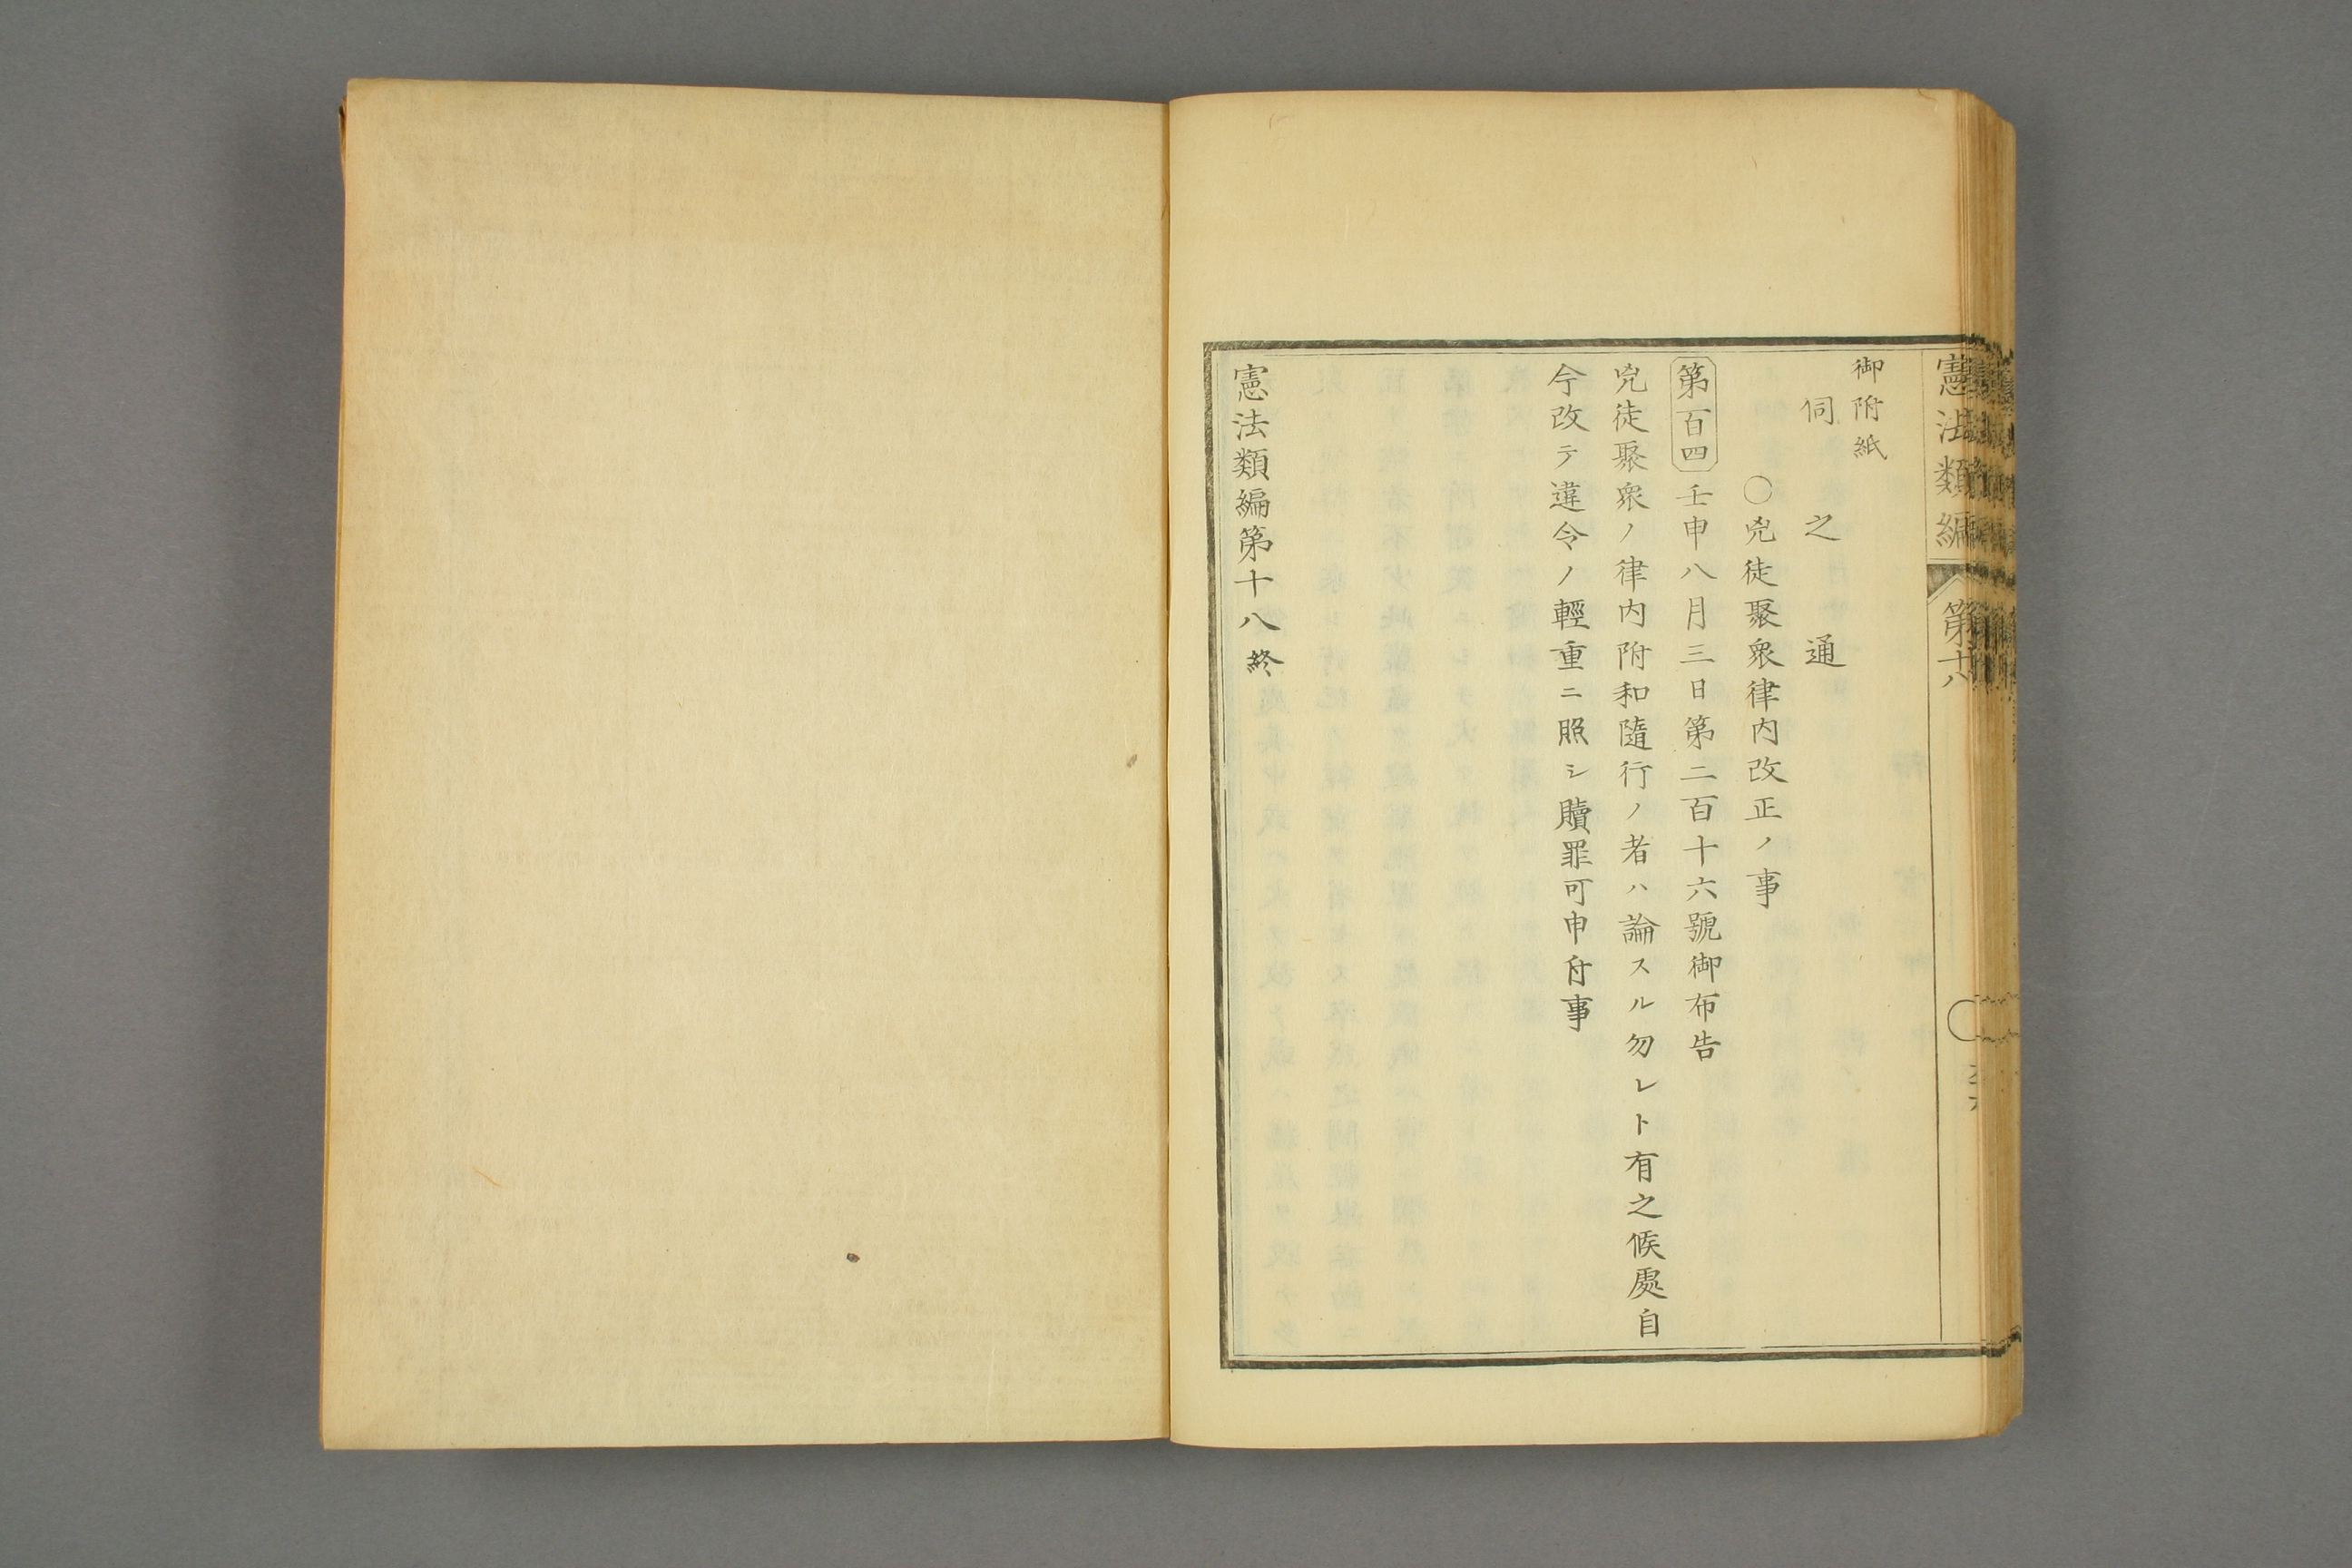 憲法類編 第十八
御附紙
伺之通
〇兇徒聚衆律内改正ノ事
第百四 壬申八月三日第二百十六號御布告
兇徒聚衆ノ律内附和隨行ノ者ハ論スル勿レト有之候處自
今改テ違令ノ輕重ニ照シ贖罪可申付事
憲法類編第十八終